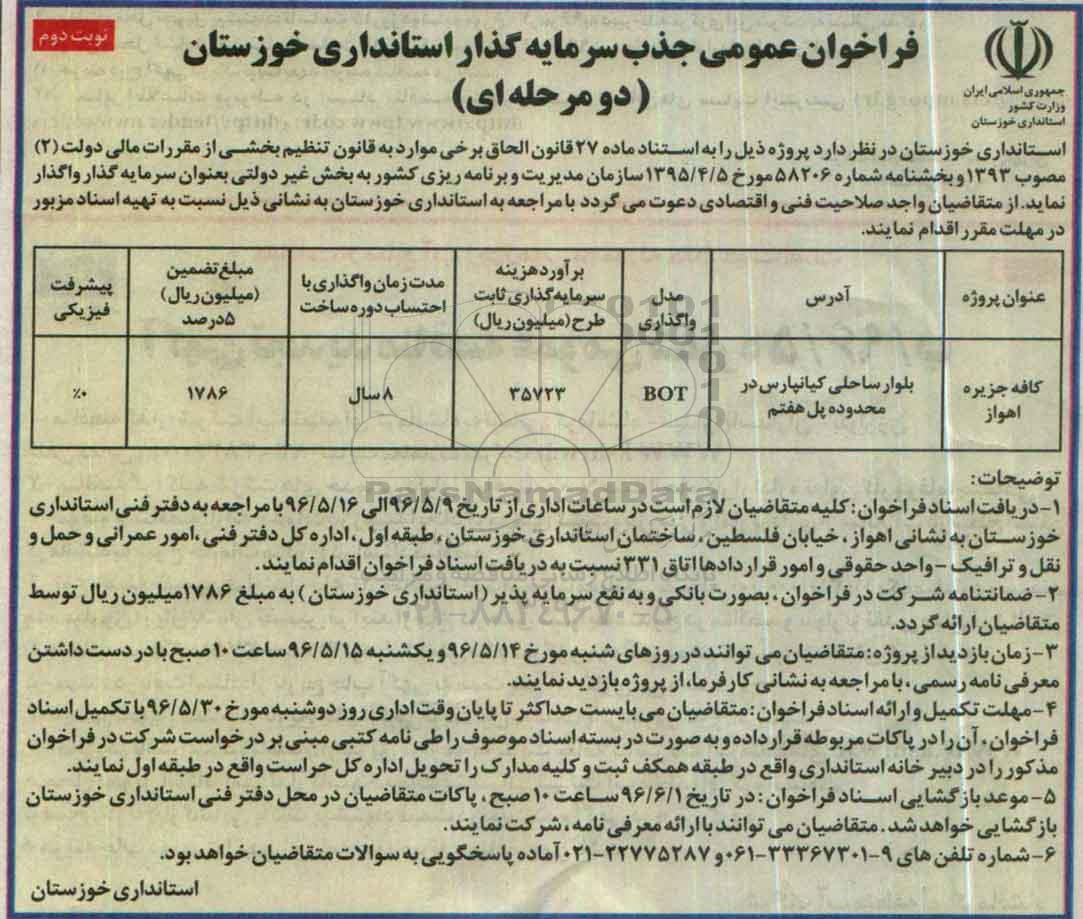 نوبت دوم
فراخوان عمومی جذب سرمایه گذار استانداری خوزستان
(دو مرحله ای)
جمهوری اسلامی ایران
وزارت کشور
استانداری خوزستان
استانداری خوزستان در نظر دارد پروژه ذیل را به استناد ماده ۲۷ قانون الحاق برخی موارد به قانون تنظیم بخشی از مقررات مالی دولت (۲)
مصوب ۱۳۹۳ و بخشنامه شماره ۵۸۲۰۶ مورخ ۱۳۹۵/۴/۵ سازمان مدیریت و برنامه ریزی کشور به بخش غیر دولتی بعنوان سرمایه گذار واگذار
نماید. از متقاضیان واجد صلاحیت فنی و اقتصادی دعوت می گردد با مراجعه به استانداری خوزستان به نشانی ذیل نسبت به تهیه اسناد مزبور
در مهلت مقرر اقدام نمایند.
عنوان پروژه
آدرس
مدل
واگذاری
برآورد هزینه
سرمایه گذاری ثابت
طرح (میلیون ریال)
مدت زمان واگذاری با
احتساب دوره ساخت
مبلغ تضمین
(میلیون ریال)
۵درصد
پیشرفت
فیزیکی
کافه جزیره
اهواز
بلوار ساحلی کیانپارس در
محدوده پل هفتم
BOT
۳۵۷۲۳
۸ سال
۱۷۸۶
٪۰
ParsNamadData
توضیحات:
۱- دریافت اسناد فراخوان: کلیه متقاضیان لازم است در ساعات اداری از تاریخ ۹۶/۵/۹ الی ۹۶/۵/۱۶ با مراجعه به دفتر فنی استانداری
خوزستان به نشانی اهواز، خیابان فلسطین، ساختمان استانداری خوزستان، طبقه اول، اداره کل دفتر فنی، امور عمرانی و حمل و
نقل و ترافیک - واحد حقوقی و امور قراردادها اتاق ۳۳۱ نسبت به دریافت اسناد فراخوان اقدام نمایند.
۲- ضمانتنامه شرکت در فراخوان، بصورت بانکی و به نفع سرمایه پذیر (استانداری خوزستان) به مبلغ ۱۷۸۶ میلیون ریال توسط
متقاضیان ارائه گردد.
۳- زمان بازدید از پروژه: متقاضیان می توانند در روزهای شنبه مورخ ۹۶/۵/۱۴ و یکشنبه ۹۶/۵/۱۵ ساعت ۱۰ صبح با در دست داشتن
معرفی نامه رسمی، با مراجعه به نشانی کارفرما، از پروژه بازدید نمایند.
۴- مهلت تکمیل و ارائه اسناد فراخوان: متقاضیان می بایست حداکثر تا پایان وقت اداری روز دوشنبه مورخ ۹۶/۵/۳۰ با تکمیل اسناد
فراخوان، آن را در پاکات مربوطه قرار داده و به صورت در بسته اسناد موصوف را طی نامه کتبی مبنی بر درخواست شرکت در فراخوان
مذکور را در دبیر خانه استانداری واقع در طبقه همکف ثبت و کلیه مدارک را تحویل اداره کل حراست واقع در طبقه اول نمایند.
۵- موعد بازگشایی اسناد فراخوان: در تاریخ ۹۶/۶/۱ ساعت ۱۰ صبح، پاکات متقاضیان در محل دفتر فنی استانداری خوزستان
بازگشایی خواهد شد. متقاضیان می توانند با ارائه معرفی نامه، شرکت نمایند.
۶- شماره تلفن های ۹-۳۳۳۶۷۳۰۱-۰۶۱ و ۲۲۷۷۵۲۸۷-۰۲۱ آماده پاسخگویی به سوالات متقاضیان خواهد بود.
استانداری خوزستان